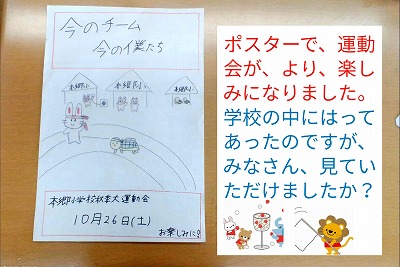 今のチーム
今の僕たち
本郷小
本郷小
本郷小学校秋季大運動会
10月26日(土)
お楽しみに?
ポスターで、運動
会が、より、楽し
みになりました。
学校の中にはって
あったのですが、
みなさん、見てい
ただけましたか？